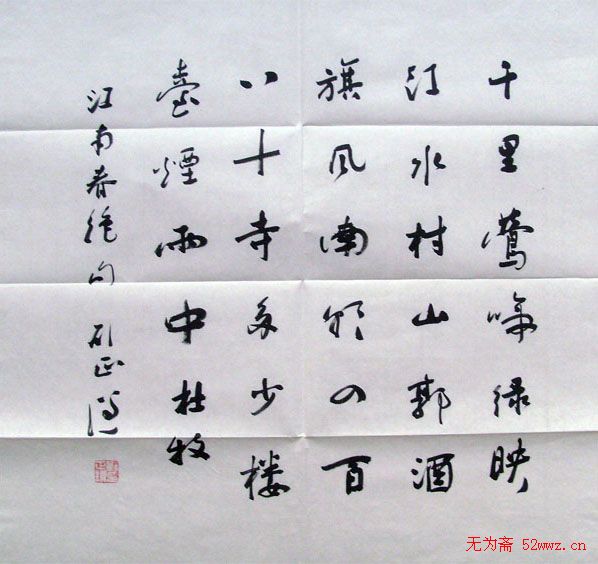 千里鶯啼绿映
江水村山郭酒
旗风南朝四百
八十寺多少楼
臺煙雨中杜牧
江南春绝句 正
无为斋 52wwz.cn